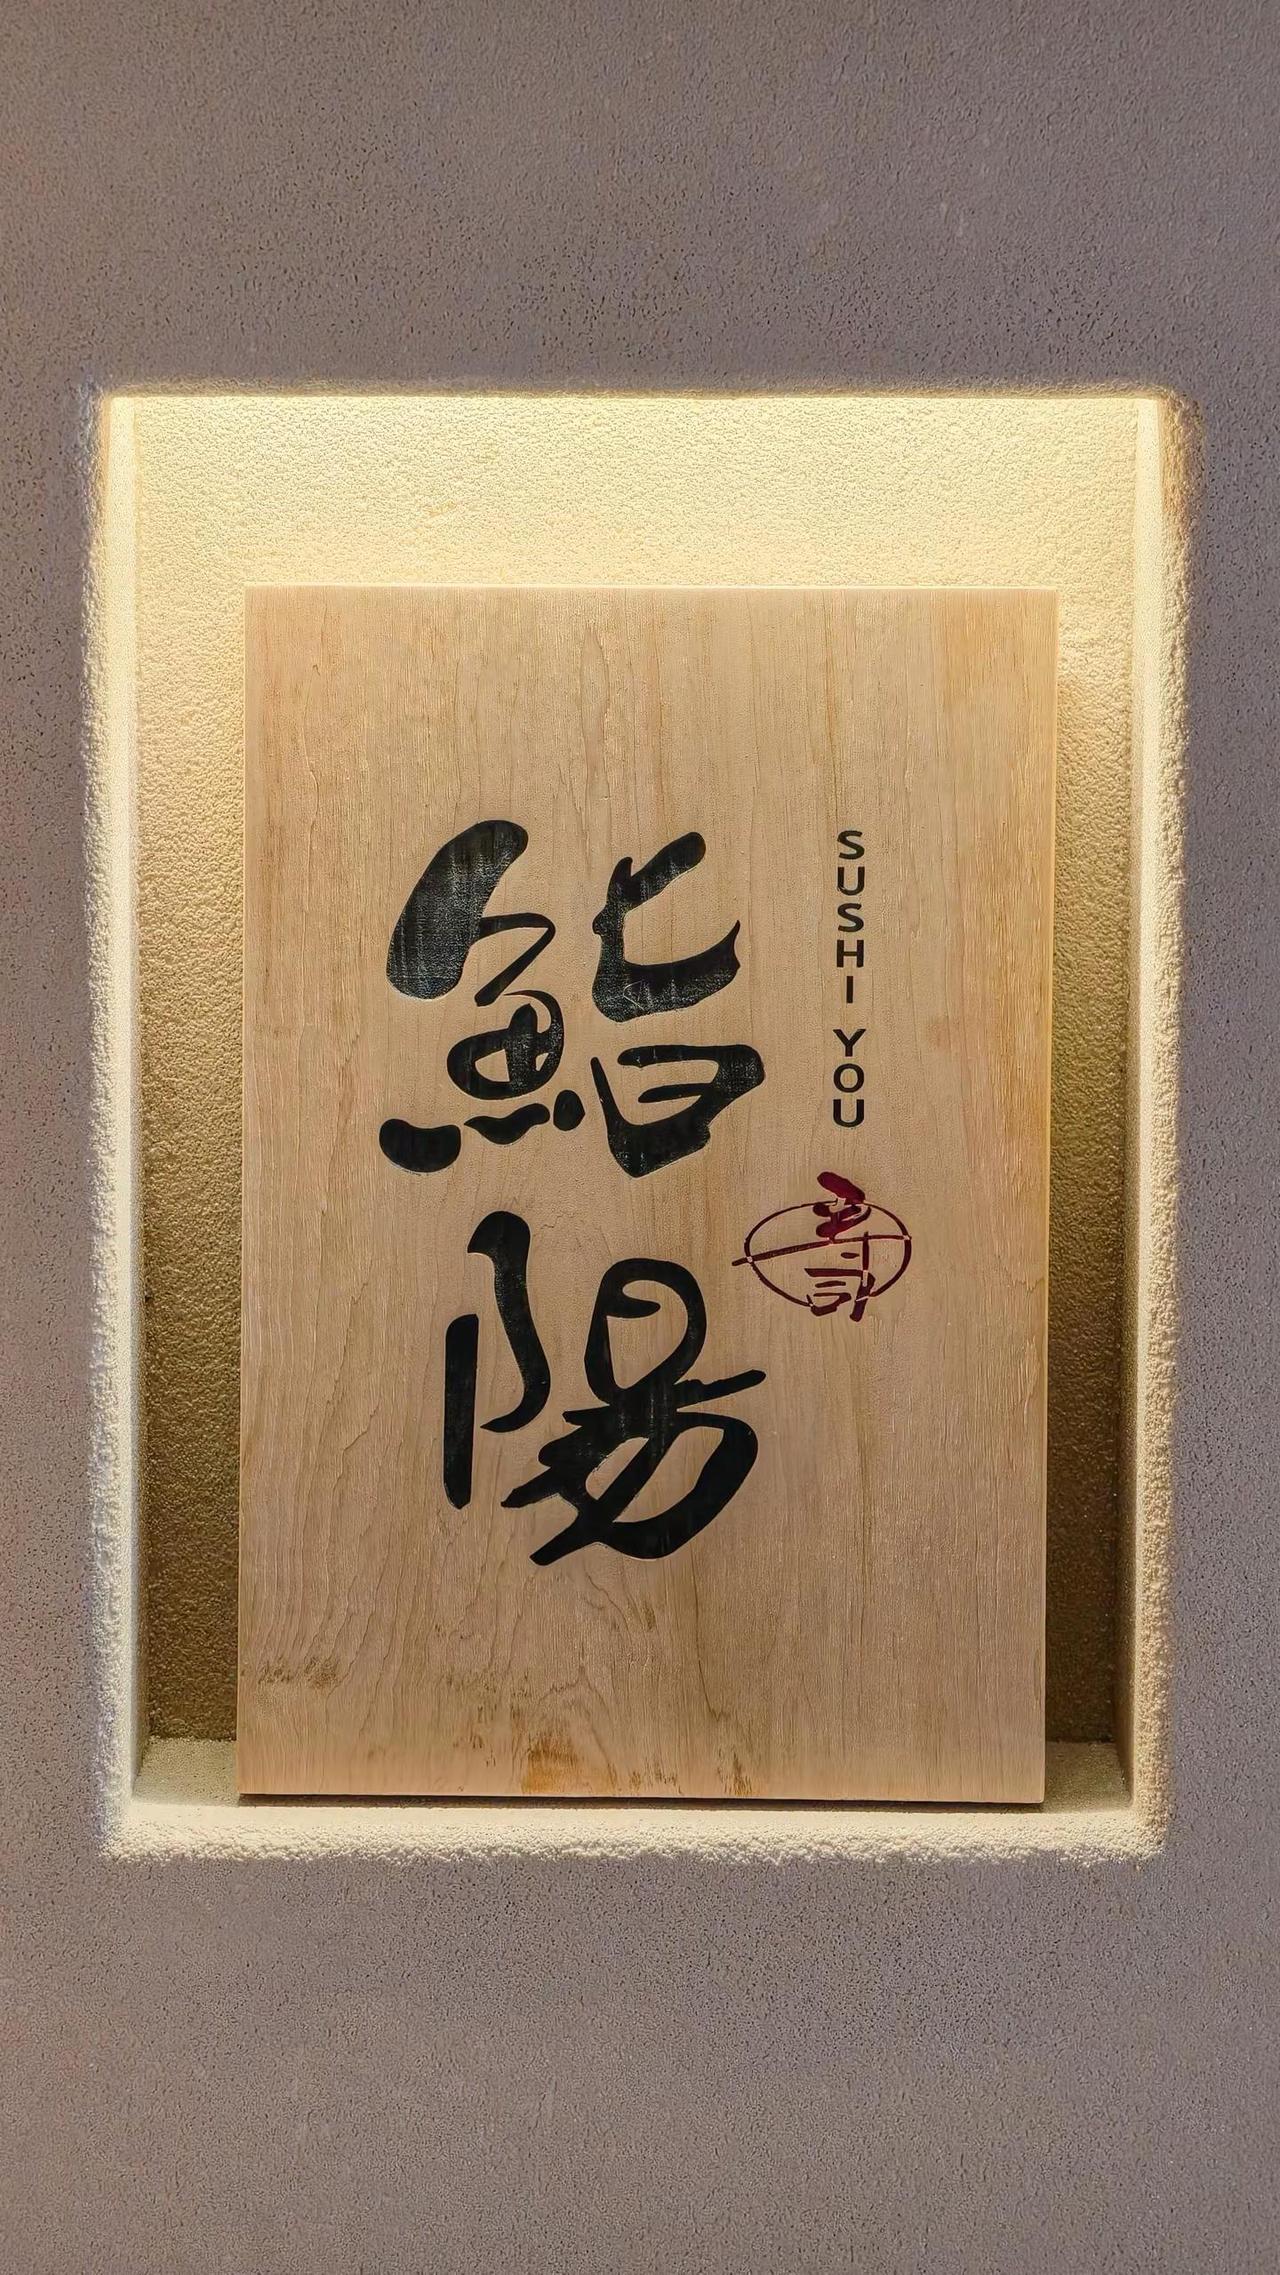 鮨陽
SUSHI YOU
寿司